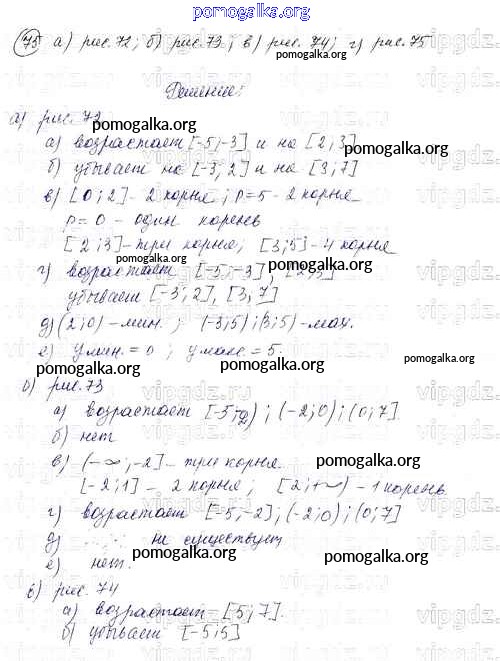 pomogalka.org
75 а) рис. 72; б) рис. 73; в) рис. 74; г) рис. 75
pomogalka.org
Решение:
а) рис. 72
pomogalka.org
а) возрастает [-5;-3] и на [2;3]
б) убывает на [-3;2] и на [3;7]
pomogalka.org
в) [0;2] - 2 корня; p=5 - 2 корня
p=0 - один корень
[2;3] - три корня; [3;5] - 4 корня
pomogalka.org
г) возрастает [-5;-3],
pomogalka.org
убывает [-3;2], [3,7]
д) (2;0) - мин.; (-3;5);(3;5) - мах.
е) y мин. = 0; y макс = 5.
pomogalka.org
б) рис. 73
а) возрастает [-5;-2); (-2;0); (0;7]
б) нет
в) (-∞;-2] - три корня
pomogalka.org
[-2;1] - 2 корня; [2;+∞) - 1 корень
г) возрастает [-5;-2]; (-2;0); (0;7]
д) не существует
е) нет.
pomogalka.org
в) рис. 74
а) возрастает [5;7].
pomogalka.org
б) убывает [-5;5]